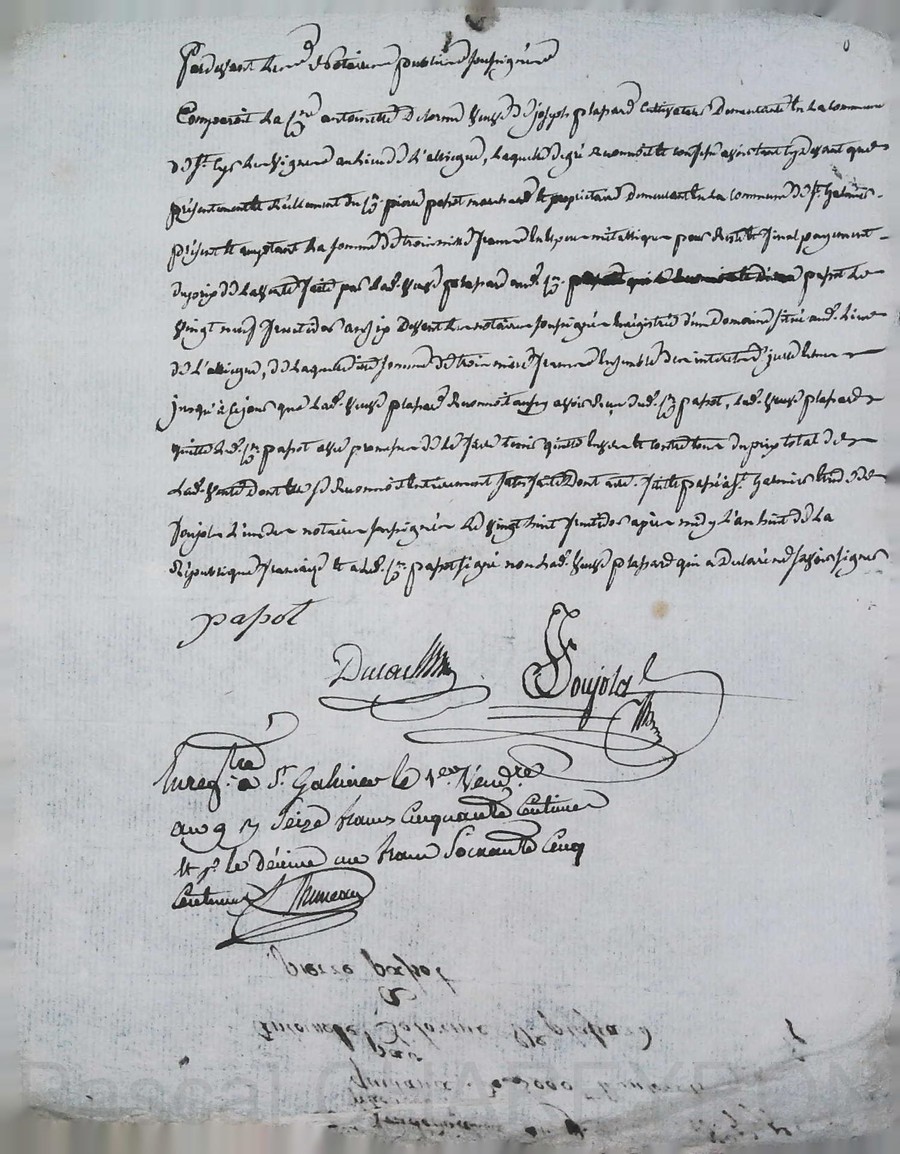 Pardevant Les Notaires publics soussignés
Comparait La Cne antoinette Delorme veuve de joseph plassard Cultivateur Demeurante En La Commune
de St. Cyr Les Vignes au Lieu de L'alliegue, Laquelle de gré Reconnoit et Confesse avoir tout presentement
présentement et Réellement du Cn pierre papot marchand et propriétaire Demeurant En La Commune de St. Galmier
présent et acceptant La somme de trois mille francs En Espece métallique pour Reste et final payement
du prix de La vente faite par Lade. veuve plassard aud. Cn papot Le
vingt neuf fructidor an six Devant Les notaires soussignés Enregistrée d'un Domaine situé aud. Lieu
de L'alliegue, de Laquelle somme de trois mille francs Ensemble des interets d'icelle
jusqu'à ce jour que Lad. veuve plassard Reconnoit aussy avoir Reçu dud. Cn papot, Lad. veuve plassard
quitte Led. Cn papot avec promesse de Le faire tenir quitte Envers et contre tous du prix total de
Lad. vente dont Elle se Reconnoit Entierement satisfaite Dont acte. fait et passé à St. Galmier Etude de
Soujols L'un des notaires soussignés Le vingt huit fructidor après midy L'an huit de La
République française Et a Led. Cn papot signé non Lad. veuve plassard qui a Déclaré ne savoir signer
papot
Soujols
Enregtré. à St. Galmier le 1er. Vendre
an 9 Seize francs Cinquante Centimes
et pr. le Décime un franc Soixante Cinq
Centimes
pierre papot
&
antoinette Delorme Ve plassard